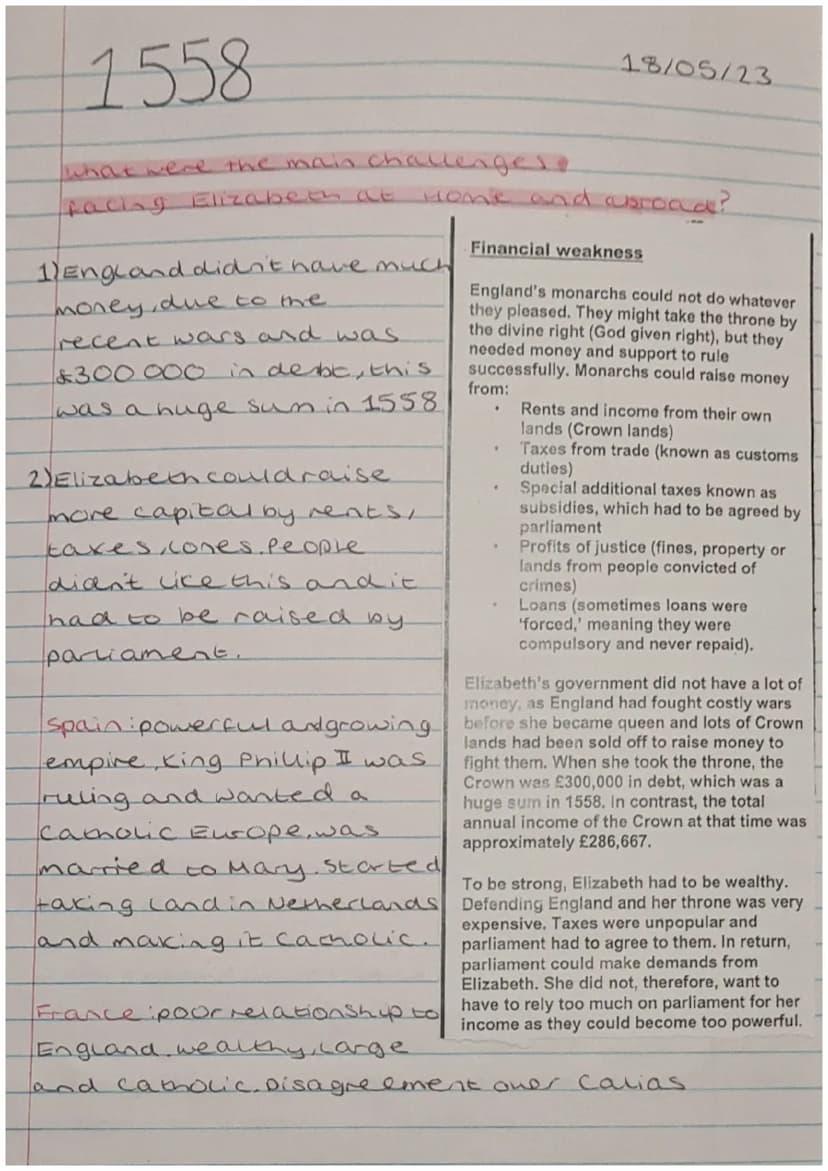 1558
18/05/23
What were the main challenges
facing Elizabeth at Home and abroad?
1) England didn't have much
money, due to the
recent wars and was
£300 000 in debt, this
was a huge sum in 1558
2) Elizabeth could raise
more capital by rents,
taxes, lones. People
didn't like this and it
had to be raised by
parliament.
Spain: powerful and growing
empire, King Phillip II was
ruling and wanted a
Catholic Europe, was
married to Mary. Started
taking land in Netherlands
and making it Catholic.
France: poor relationship to
England. wealthy, large
and catholic. Disagreement over Calias
Financial weakness
England's monarchs could not do whatever
they pleased. They might take the throne by
the divine right (God given right), but they
needed money and support to rule
successfully. Monarchs could raise money
from:
• Rents and income from their own
lands (Crown lands)
• Taxes from trade (known as customs
duties)
• Special additional taxes known as
subsidies, which had to be agreed by
parliament
• Profits of justice (fines, property or
lands from people convicted of
crimes)
• Loans (sometimes loans were
'forced,' meaning they were
compulsory and never repaid).
Elizabeth's government did not have a lot of
money, as England had fought costly wars
before she became queen and lots of Crown
lands had been sold off to raise money to
fight them. When she took the throne, the
Crown was £300,000 in debt, which was a
huge sum in 1558. In contrast, the total
annual income of the Crown at that time was
approximately £286,667.
To be strong, Elizabeth had to be wealthy.
Defending England and her throne was very
expensive. Taxes were unpopular and
parliament had to agree to them. In return,
parliament could make demands from
Elizabeth. She did not, therefore, want to
have to rely too much on parliament for her
income as they could become too powerful.